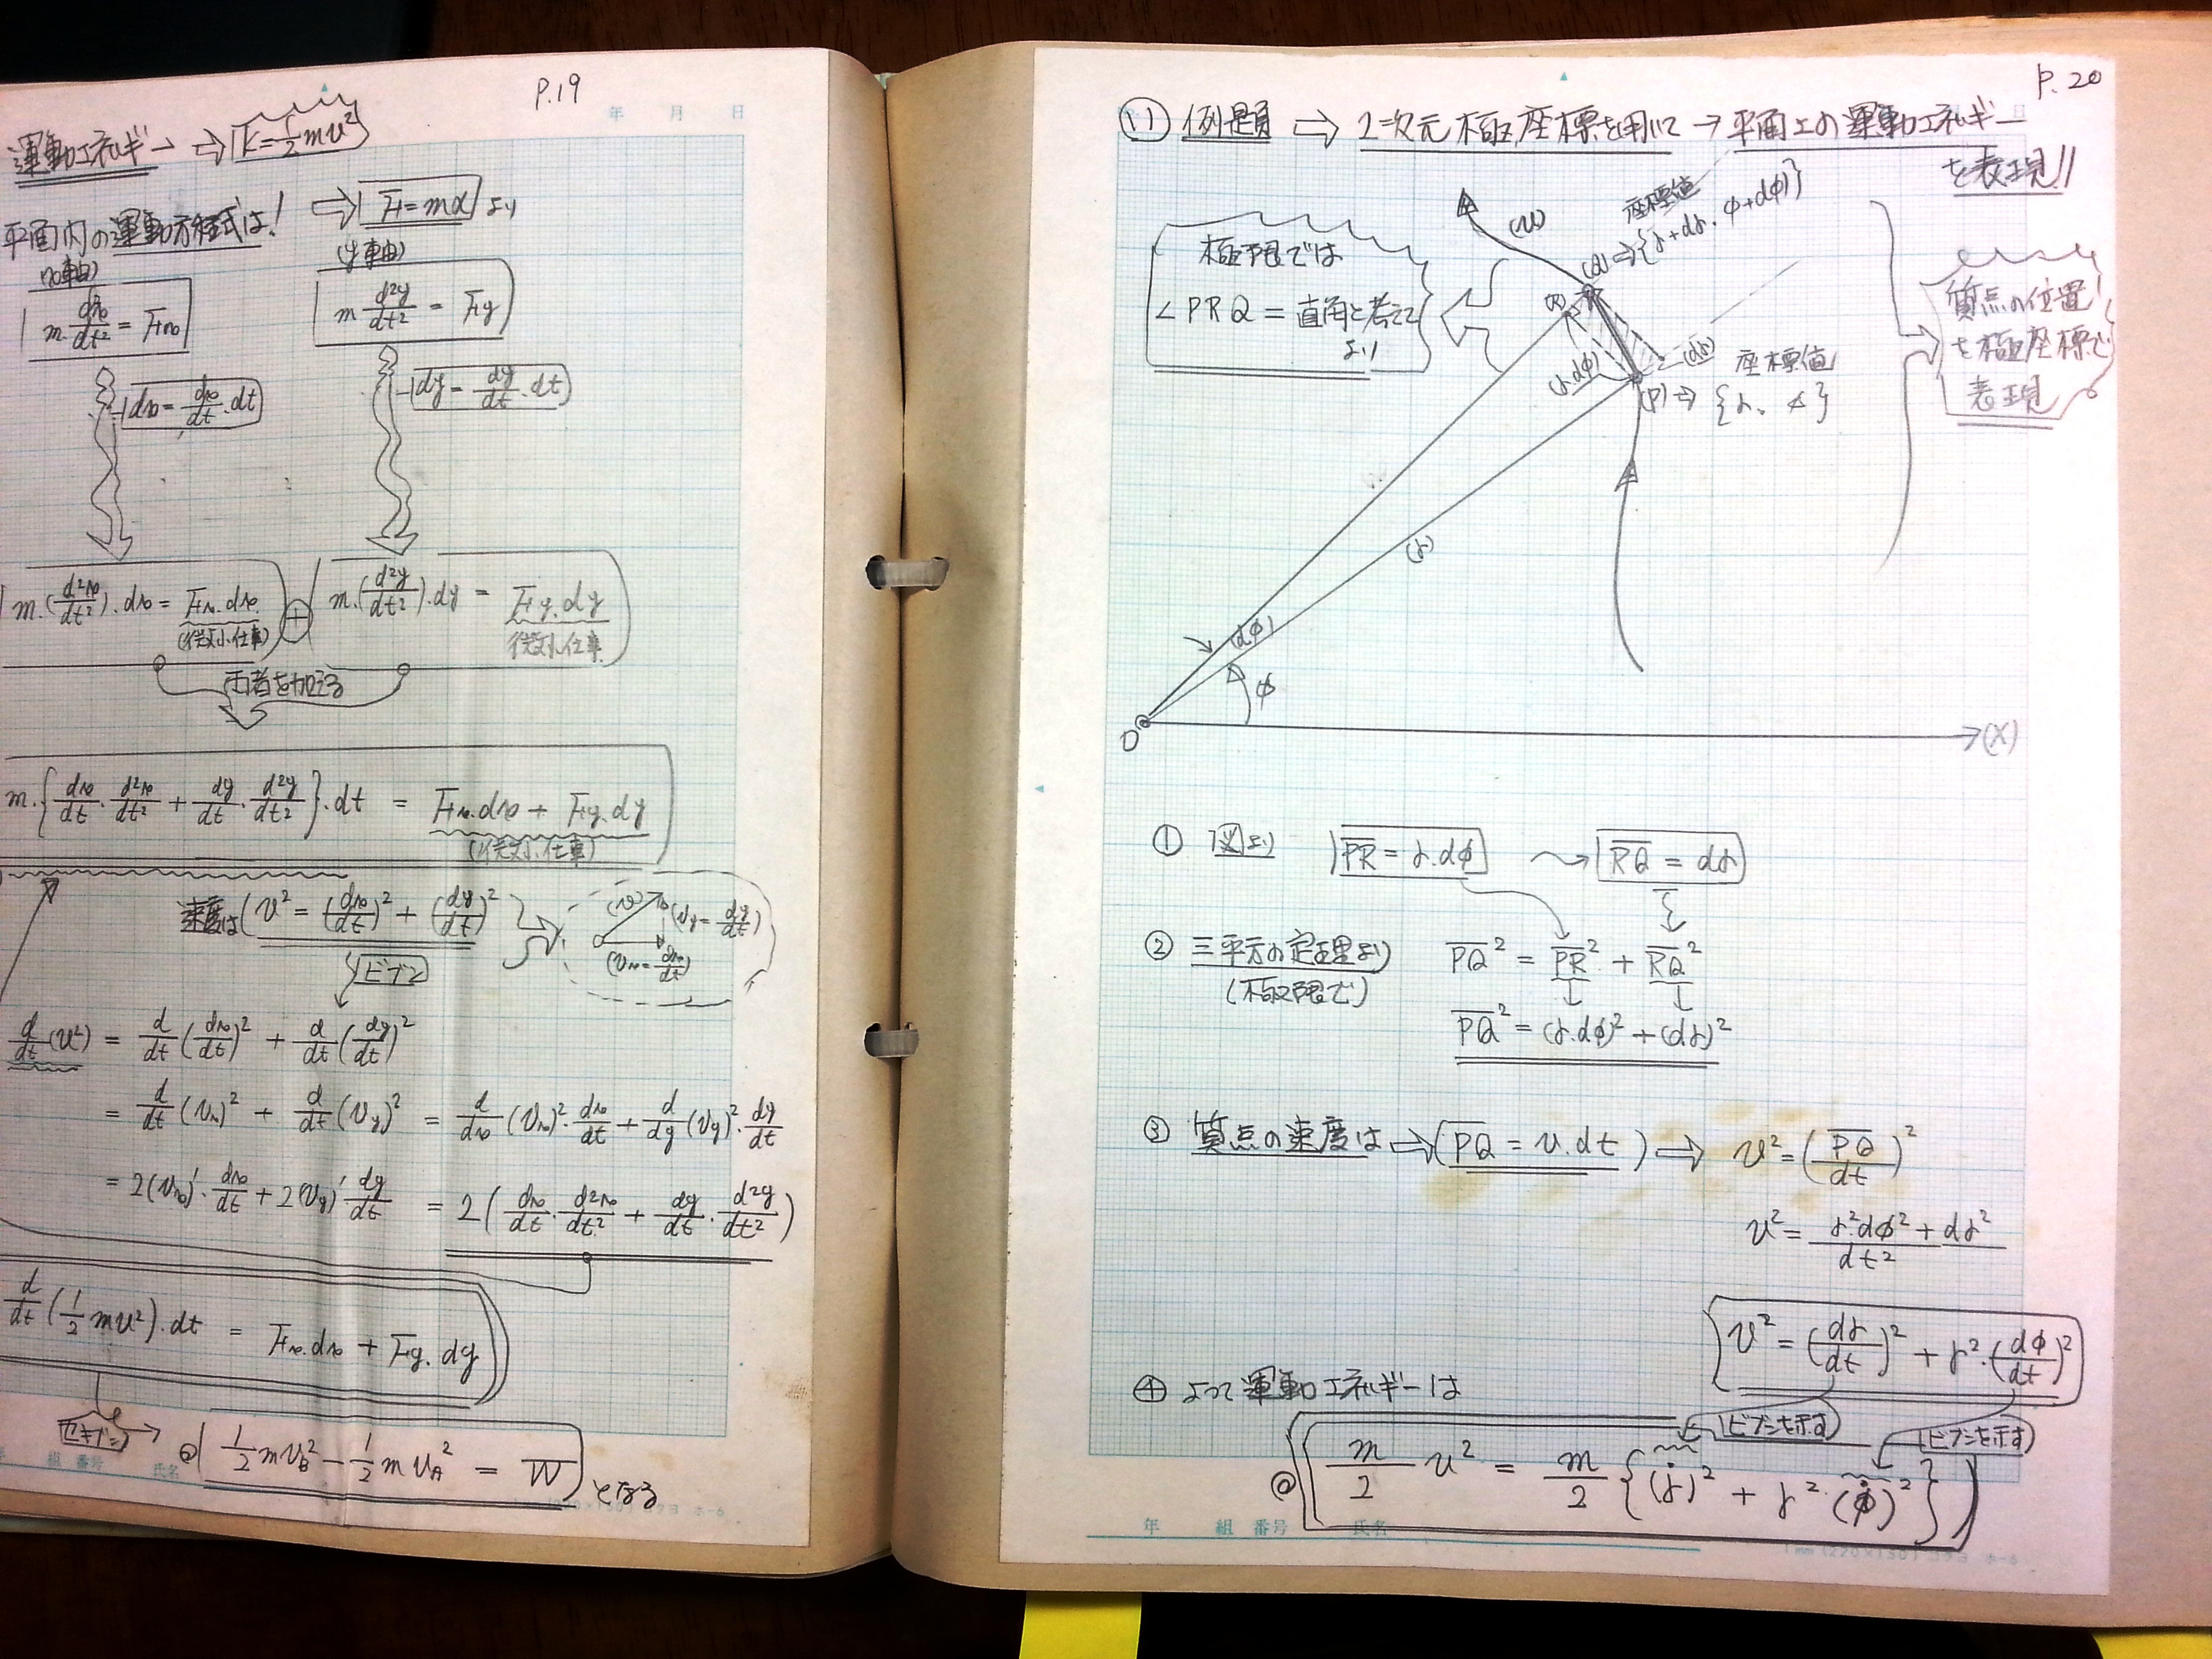 P.19
年 月 日
運動エネルギー ⇒ K=1/2 mv²
平面内の運動方程式は! ⇒ F=mα より
(x軸) (y軸)
m·d²x/dt² = Fx
m d²y/dt² = Fy
dx = dx/dt·dt
dy = dy/dt·dt
m·(d²x/dt²)·dx = Fx·dx ⊕ m·(d²y/dt²)·dy = Fy·dy
(微小仕事) 微小仕事
両者を加える
m·{dx/dt·d²x/dt² + dy/dt·d²y/dt²}·dt = Fx·dx + Fy·dy
(微小仕事)
速度は (v² = (dx/dt)² + (dy/dt)²
(v) (vy = dy/dt)
(vx = dx/dt)
ビブン
d/dt(v²) = d/dt(dx/dt)² + d/dt(dy/dt)²
= d/dt(vx)² + d/dt(vy)² = d/dx(vx)²·dx/dt + d/dy(vy)²·dy/dt
= 2(vx)'·dx/dt + 2(vy)'·dy/dt = 2(dx/dt·d²x/dt² + dy/dt·d²y/dt²)
d/dt(1/2 mv²)·dt = Fx·dx + Fy·dy
セキブン → ◎ 1/2 mv_B² - 1/2 mv_A² = W となる
組 番号 氏名
P.20
(1) 例題 ⇒ 2次元極座標を用いて → 平面上の運動エネルギー
を表現!!
極限では
∠PRQ = 直角と考えて
より
(v)
座標値
(Q) ⇒ {r+dr, φ+dφ}
(R)
(dr)
(r·dφ)
座標値
(P) ⇒ {r, φ}
質点の位置
を極座標で
表現
(r)
(dφ)
φ
O
(X)
① 図より PR = r·dφ → RQ = dr
② 三平方の定理より PQ² = PR² + RQ²
(極限で)
PQ² = (r·dφ)² + (dr)²
③ 質点の速度は ⇒ (PQ = v·dt) ⇒ v² = (PQ/dt)²
v² = r²dφ² + dr² / dt²
v² = (dr/dt)² + r²·(dφ/dt)²
④ よって運動エネルギーは
ビブンを示す ビブンを示す
◎ m/2 v² = m/2 {(ṙ)² + r²·(φ̇)²}
年 組 番号 氏名